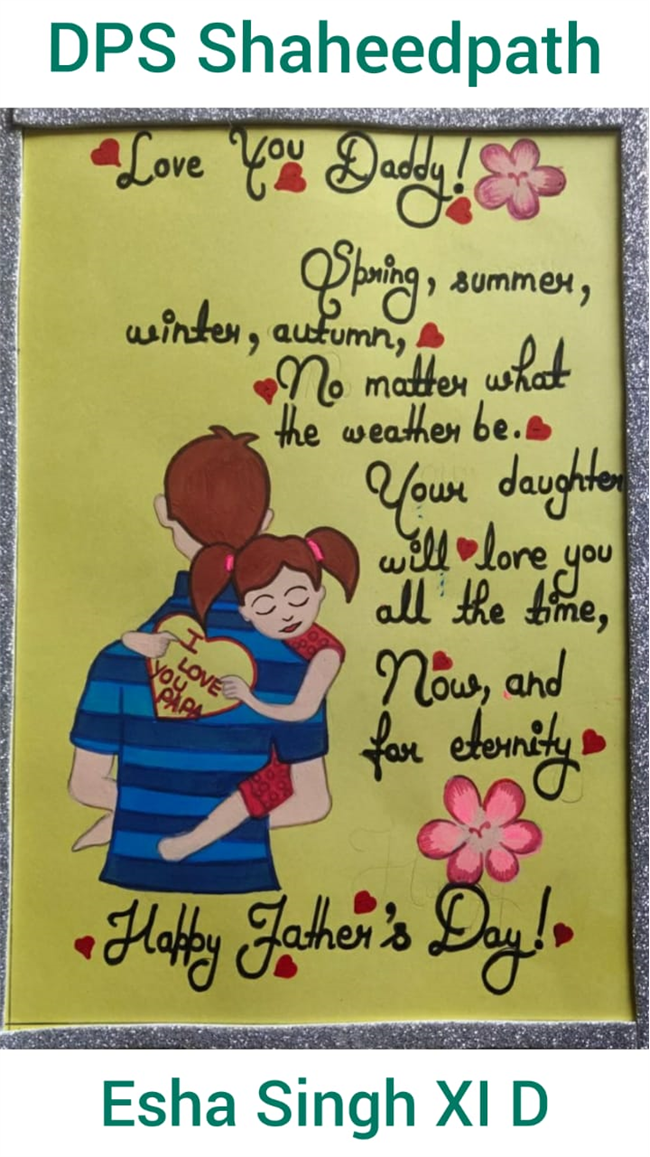 DPS Shaheedpath
Love You Daddy!
Spring, summer,
winter, autumn,
No matter what
the weather be.
Your daughter
will love you
all the time,
Now, and
for eternity
I
LOVE
YOU
PAPA
Happy Father's Day!
Esha Singh XI D